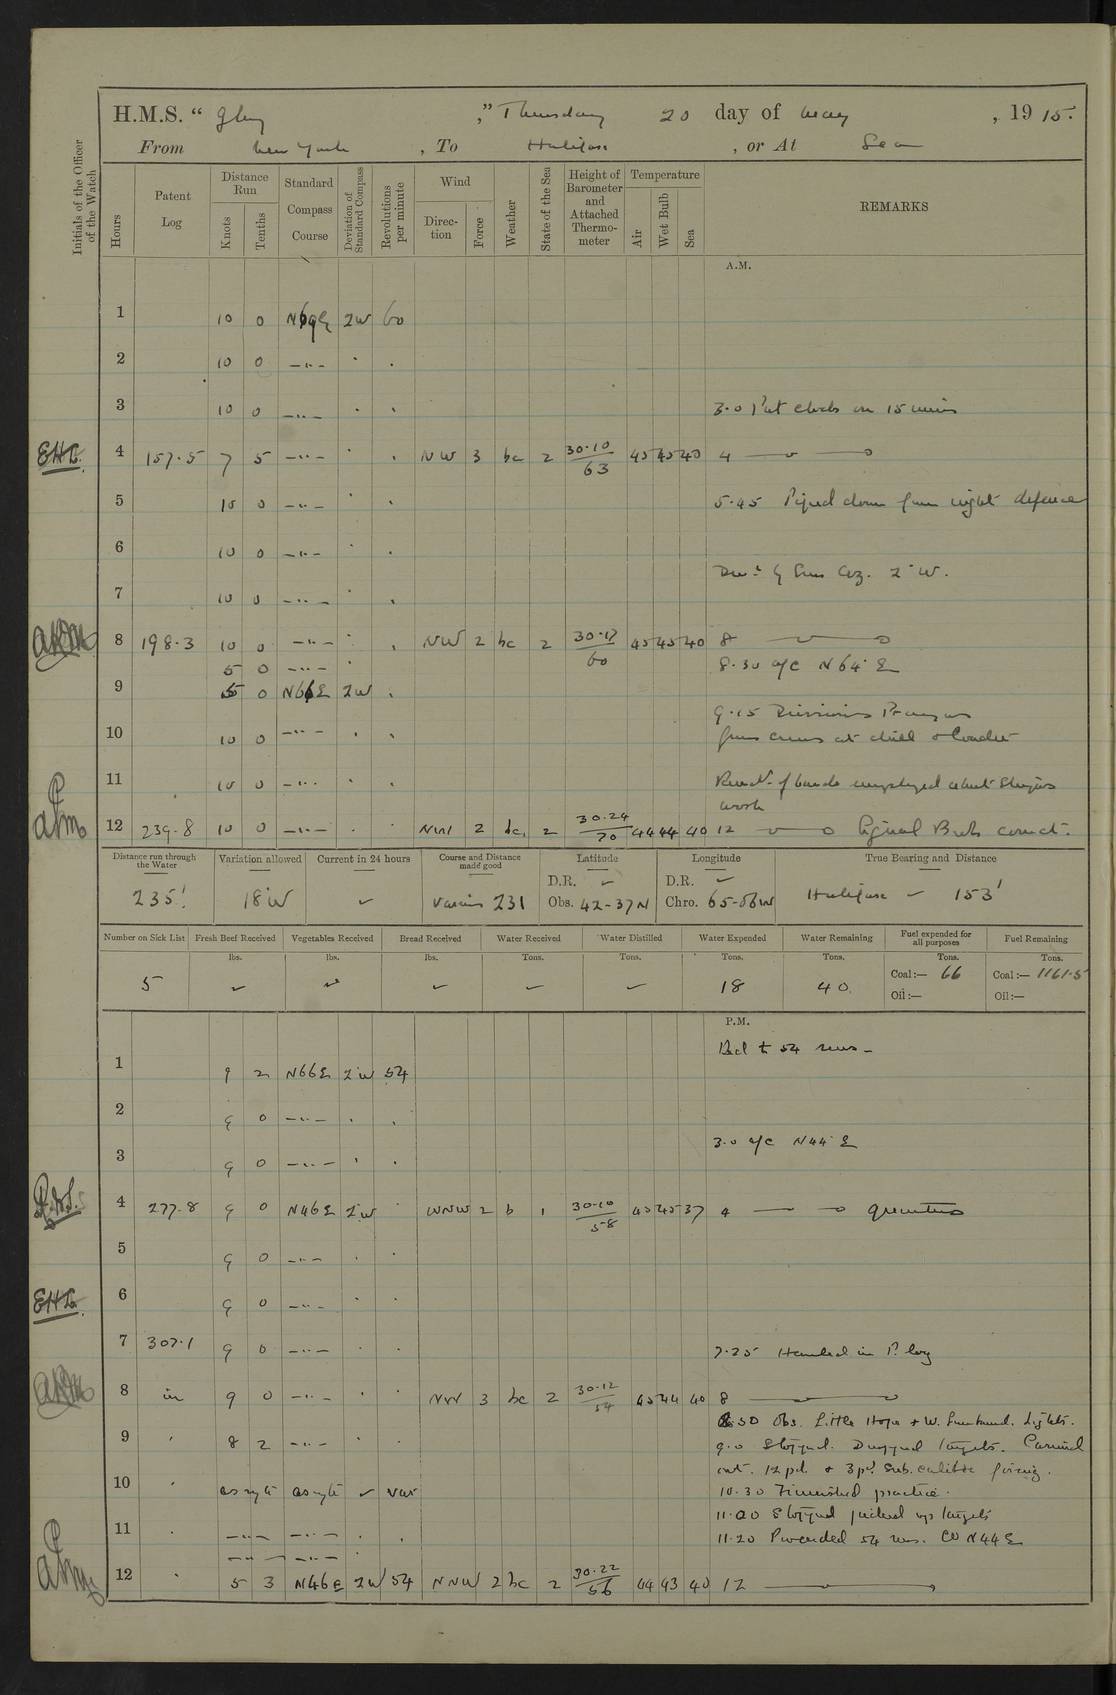 H.M.S. " Glory ," Thursday 20 day of May , 19 15.
From New York , To Halifax , or At Sea
Initials of the Officer of the Watch
Hours
Patent Log
Distance Run
Knots
Tenths
Standard Compass Course
Deviation of Standard Compass
Revolutions per minute
Wind
Direc-tion
Force
Weather
State of the Sea
Height of Barometer and Attached Thermo-meter
Temperature
Air
Wet Bulb
Sea
REMARKS
A.M.
1 10 0 N69E 2W 60
2 10 0 —··— · ·
3 10 0 —··— · · 3·0 Put clocks on 15 mins
4 157·5 7 5 —··— · · NW 3 bc 2 30·10/63 45 45 40 4
5 10 0 —··— · · 5·45 Piped down from night defence
6 10 0 —··— · ·
Devn by Sun Az. 2° W.
7 10 0 —··— · ·
8 198·3 10 0 —··— · · NW 2 bc 2 30·17/60 45 45 40 8
5 0 —··— · 8·30 a/c N64°E
9 5 0 N66E 2W ·
9·15 Divisions Prayers
10 10 0 —··— · · Guns crews at drill & loader
11 10 0 —··— · · Remdr of hands employed about Ship's
work
12 239·8 10 0 —··— · · NW 2 bc 2 30·24/70 44 44 40 12 Signal Books correct.
Distance run through the Water
235'
Variation allowed
18°W
Current in 24 hours
Course and Distance made good
Various 231
Latitude
D.R.
Obs. 42-37N
Longitude
D.R.
Chro. 65-56W
True Bearing and Distance
Halifax — 153'
Number on Sick List
5
Fresh Beef Received
lbs.
Vegetables Received
lbs.
Bread Received
lbs.
Water Received
Tons.
Water Distilled
Tons.
Water Expended
Tons.
18
Water Remaining
Tons.
40
Fuel expended for all purposes
Tons.
Coal:— 66
Oil:—
Fuel Remaining
Tons.
Coal:— 1161·5
Oil:—
P.M.
to 54 revs
1 9 2 N66E 2W 54
2 9 0 —··— · ·
3·0 a/c N44°E
3 9 0 —··— · ·
4 277·8 9 0 N46E 2W · WNW 2 b 1 30·10/58 45 45 37 4 Quarters
5 9 0 —··— · ·
6 9 0 —··— · ·
EHL
7 307·1 9 0 —··— · · 7·25 Hauled in P. log
8 in 9 0 —··— · · NW 3 bc 2 30·12/54 45 44 40 8
8·50 Obs. Little Hope & W. Lights.
9 · 8 2 —··— · · 9·0 Stopped. Dropped targets. Carried
out. 12 pdr & 3 pdr Sub. calibre firing.
10 · as reqte as reqte var 10·30 Finished practice.
11·00 Stopped picked up targets
11 · —··— —··— · · 11·20 Proceeded 54 revs. Co N44E
—··— —··—
12 · 5 3 N46E 2W 54 NNW 2 bc 2 30·22/56 44 43 40 12